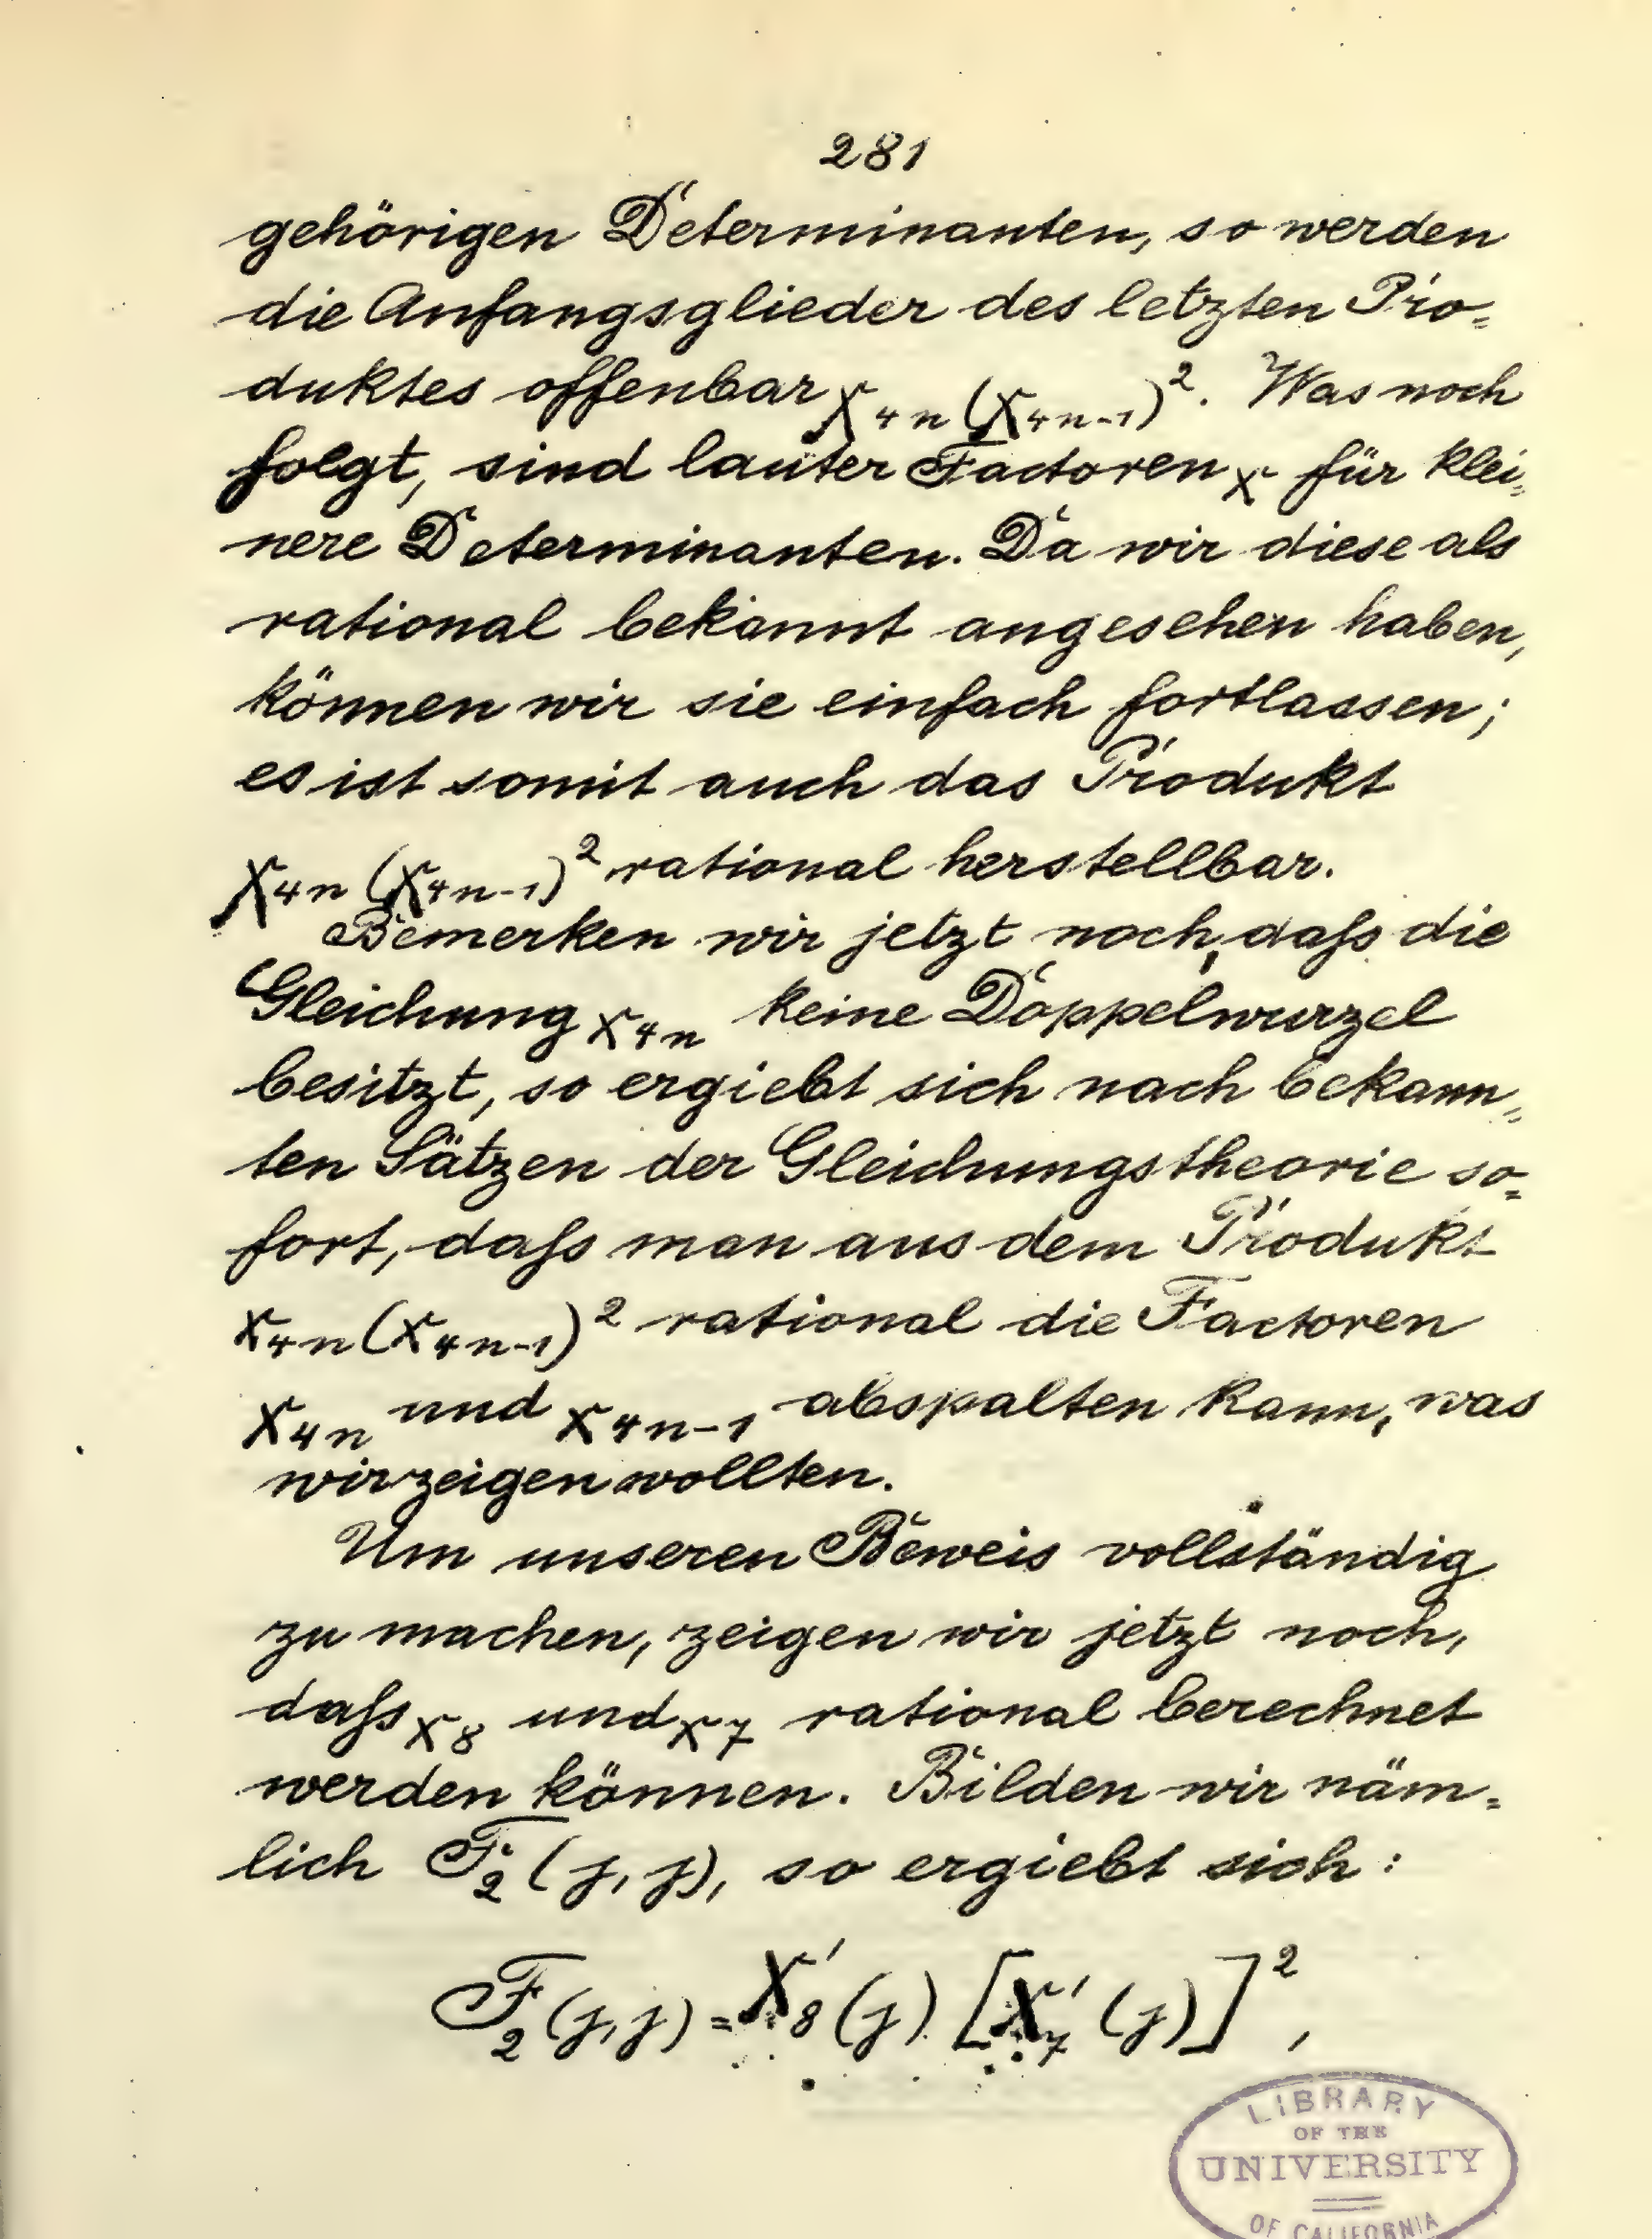 281
gehörigen Determinanten, so werden
die Anfangsglieder des letzten Pro=
duktes offenbar X₄ₙ(X₄ₙ₋₁)². Was noch
folgt, sind lauter Factoren X für klei=
nere Determinanten. Da wir diese als
rational bekannt angesehen haben,
können wir sie einfach fortlassen;
es ist somit auch das Produkt
X₄ₙ(X₄ₙ₋₁)² rational herstellbar.
Bemerken wir jetzt noch, daſs die
Gleichung X₄ₙ keine Doppelwurzel
besitzt, so ergiebt sich nach bekann=
ten Sätzen der Gleichungstheorie so=
fort, daſs man aus dem Produkt
X₄ₙ(X₄ₙ₋₁)² rational die Factoren
X₄ₙ und X₄ₙ₋₁ abspalten kann, was
wir zeigen wollten.
Um unseren Beweis vollständig
zu machen, zeigen wir jetzt noch,
daſs X₈ und X₇ rational berechnet
werden können. Bilden wir näm=
lich F₂(j, j), so ergiebt sich:
F₂(j, j) = X′₈(j) [X′₇(j)]²,
LIBRARY
OF THE
UNIVERSITY
OF CALIFORNIA